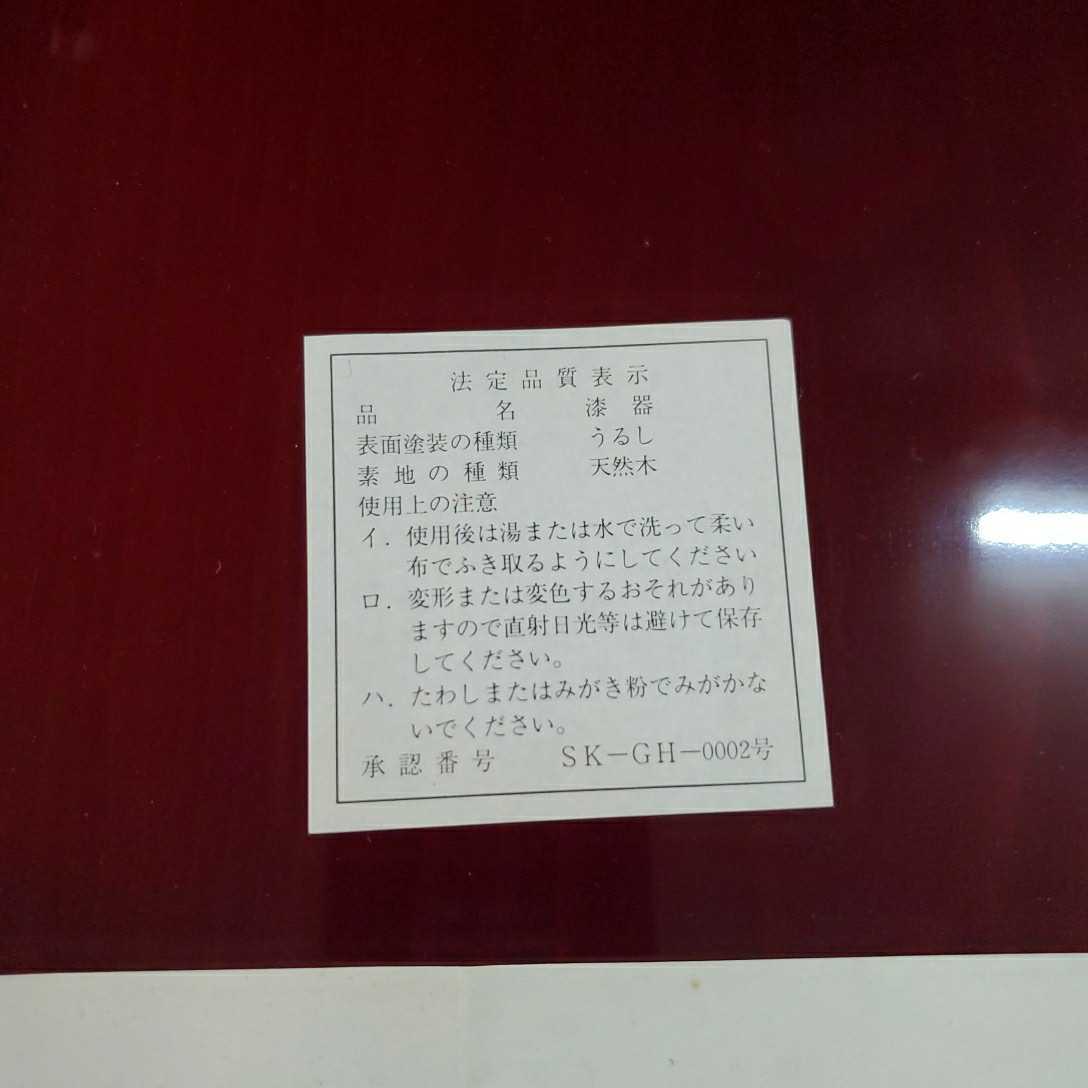 法定品質表示
品名 漆器
表面塗装の種類 うるし
素地の種類 天然木
使用上の注意
イ．使用後は湯または水で洗って柔い
布でふき取るようにしてください
ロ．変形または変色するおそれがあり
ますので直射日光等は避けて保存
してください。
ハ．たわしまたはみがき粉でみがかな
いでください。
承認番号 SK－GH－0002号